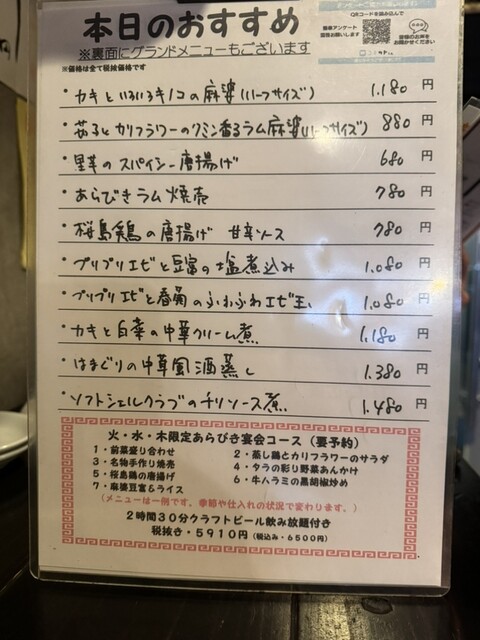 QRコードを読み込んで
簡単アンケート
回答お願いします
皆様のお声を
お聞かせください
本日のおすすめ
※裏面にグランドメニューもございます
※価格は全て税抜価格です
・カキといろいろキノコの麻婆(ハーフサイズ) 1.180 円
・茄子とカリフラワーのクミン香るラム麻婆(ハーフサイズ) 880 円
・里芋のスパイシー唐揚げ 680 円
・あらびきラム焼売 780 円
・桜島鶏の唐揚げ 甘辛ソース 780 円
・プリプリエビと豆腐の塩煮込み 1.080 円
・プリプリエビと春雨のふわふわエビ玉 1.080 円
・カキと白菜の中華クリーム煮 1.180 円
・はまぐりの中華風酒蒸し 1.380 円
・ソフトシェルクラブのチリソース煮 1.480 円
火・水・木限定あらびき宴会コース(要予約)
1・前菜盛り合わせ 2・蒸し鶏とカリフラワーのサラダ
3・名物手作り焼売 4・タラの彩り野菜あんかけ
5・桜島鶏の唐揚げ 6・牛ハラミの黒胡椒炒め
7・麻婆豆富&ライス
(メニューは一例です。季節や仕入れの状況で変わります。)
2時間30分クラフトビール飲み放題付き
税抜き・5910円(税込み・6500円)